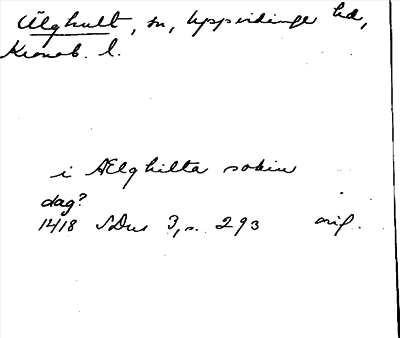 Älghult, sn, Uppvidinge hd,
Kronob. l.
i Ælghilta sokin
dag?
1418 SDns 3, s. 293 orig.